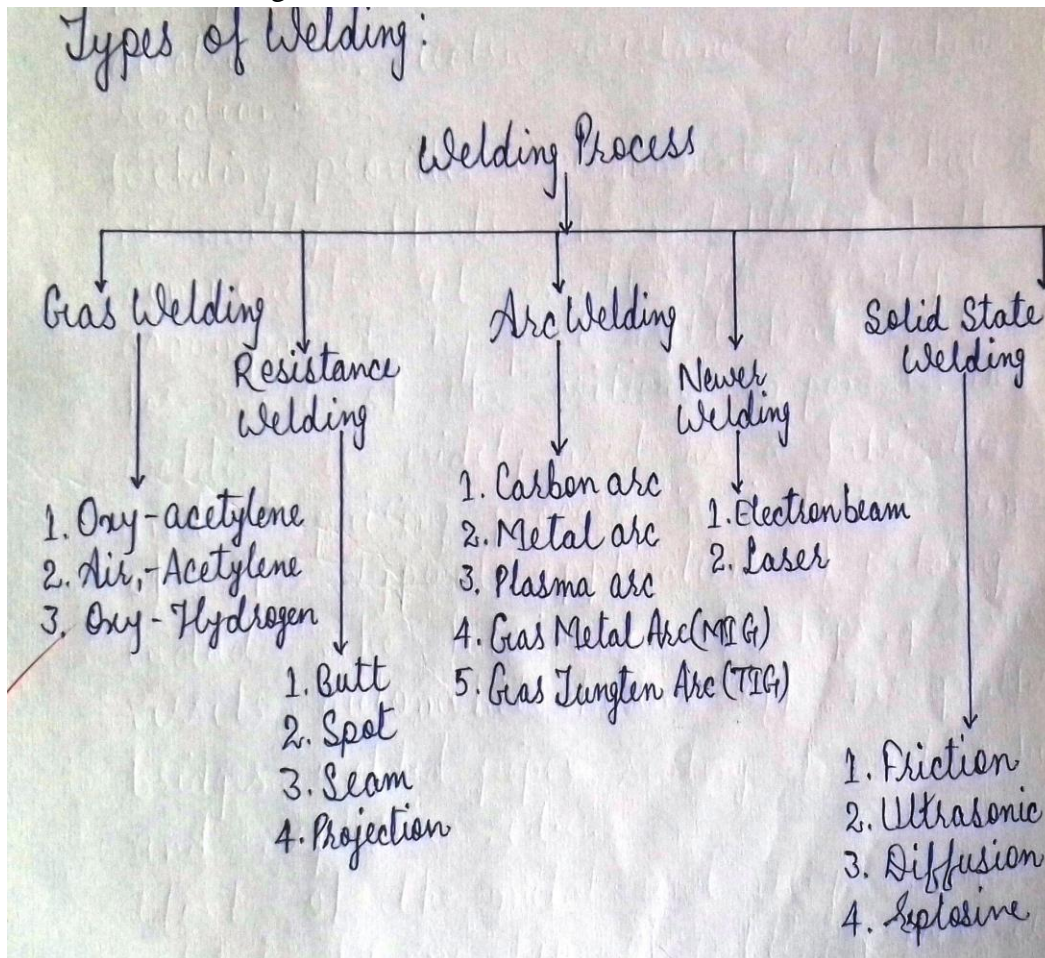 Types of Welding:
Welding Process
Gas Welding
1. Oxy-acetylene
2. Air,-Acetylene
3. Oxy-Hydrogen
Resistance
Welding
1. Butt
2. Spot
3. Seam
4. Projection
Arc Welding
1. Carbon arc
2. Metal arc
3. Plasma arc
4. Gas Metal Arc(MIG)
5. Gas Tungten Arc (TIG)
Newer
Welding
1. Electron beam
2. Laser
Solid State
Welding
1. Friction
2. Ultrasonic
3. Diffusion
4. Explosine